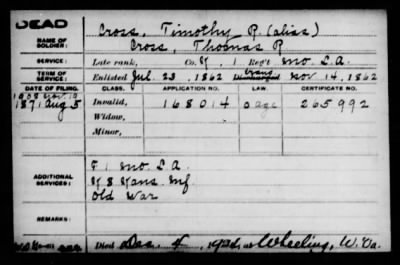 DEAD
NAME OF SOLDIER:
Cross, Timothy P. (alias)
Cross, Thomas P
SERVICE:
Late rank, Co. K, 1 Reg't Mo. L A.
TERM OF SERVICE:
Enlisted Jul. 23, 1862 Nov. 14, 1862
DATE OF FILING. CLASS. APPLICATION NO. LAW. CERTIFICATE NO.
1871 Aug 5 Invalid, 168014 O age 265992
Widow,
Minor,
ADDITIONAL SERVICES:
F 1 Mo. L A.
K 8 Kans. Inf
Old War
REMARKS:
Died Dec. 4, at Wheeling, W. Va.